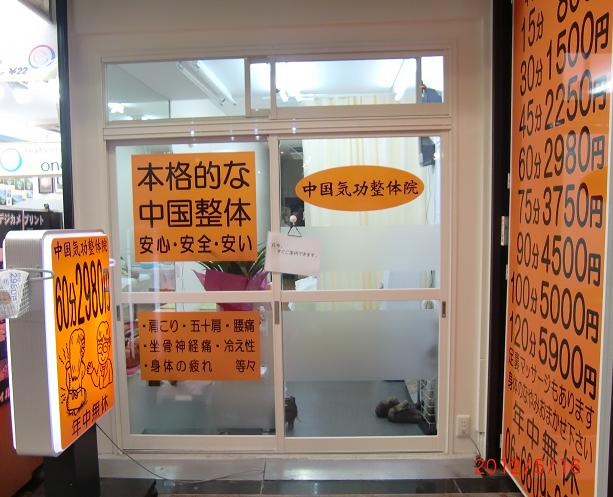 ¥22
デジカメプリント
中国気功整体院
60分2980円
年中無休
本格的な
中国整体
安心・安全・安い
中国気功整体院
只今、
すぐご案内できます。
・肩こり・五十肩・腰痛
・坐骨神経痛・冷え性
・身体の疲れ 等々
15分
30分 1500円
45分 2250円
60分 2980円
75分 3750円
90分 4500円
100分 5000円
120分 5900円
足裏マッサージもあります
身体のお悩みおまかせ下さい
年中無休